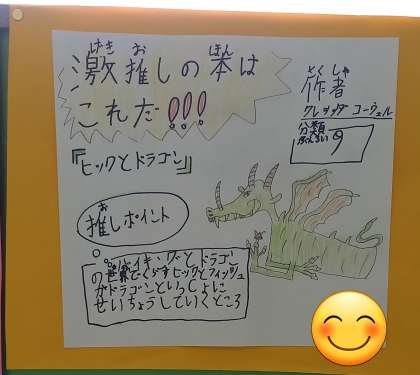 激推しの本は
げき お ほん
これだ!!!
作者
さくしゃ
クレシッダ コーウェル
分類
ぶんるい
9
『ヒックとドラゴン』
推しポイント
お
バイキングとドラゴン
の世界でくらすヒックとフィッシュ
がドラゴンといっしょに
せいちょうしていくところ